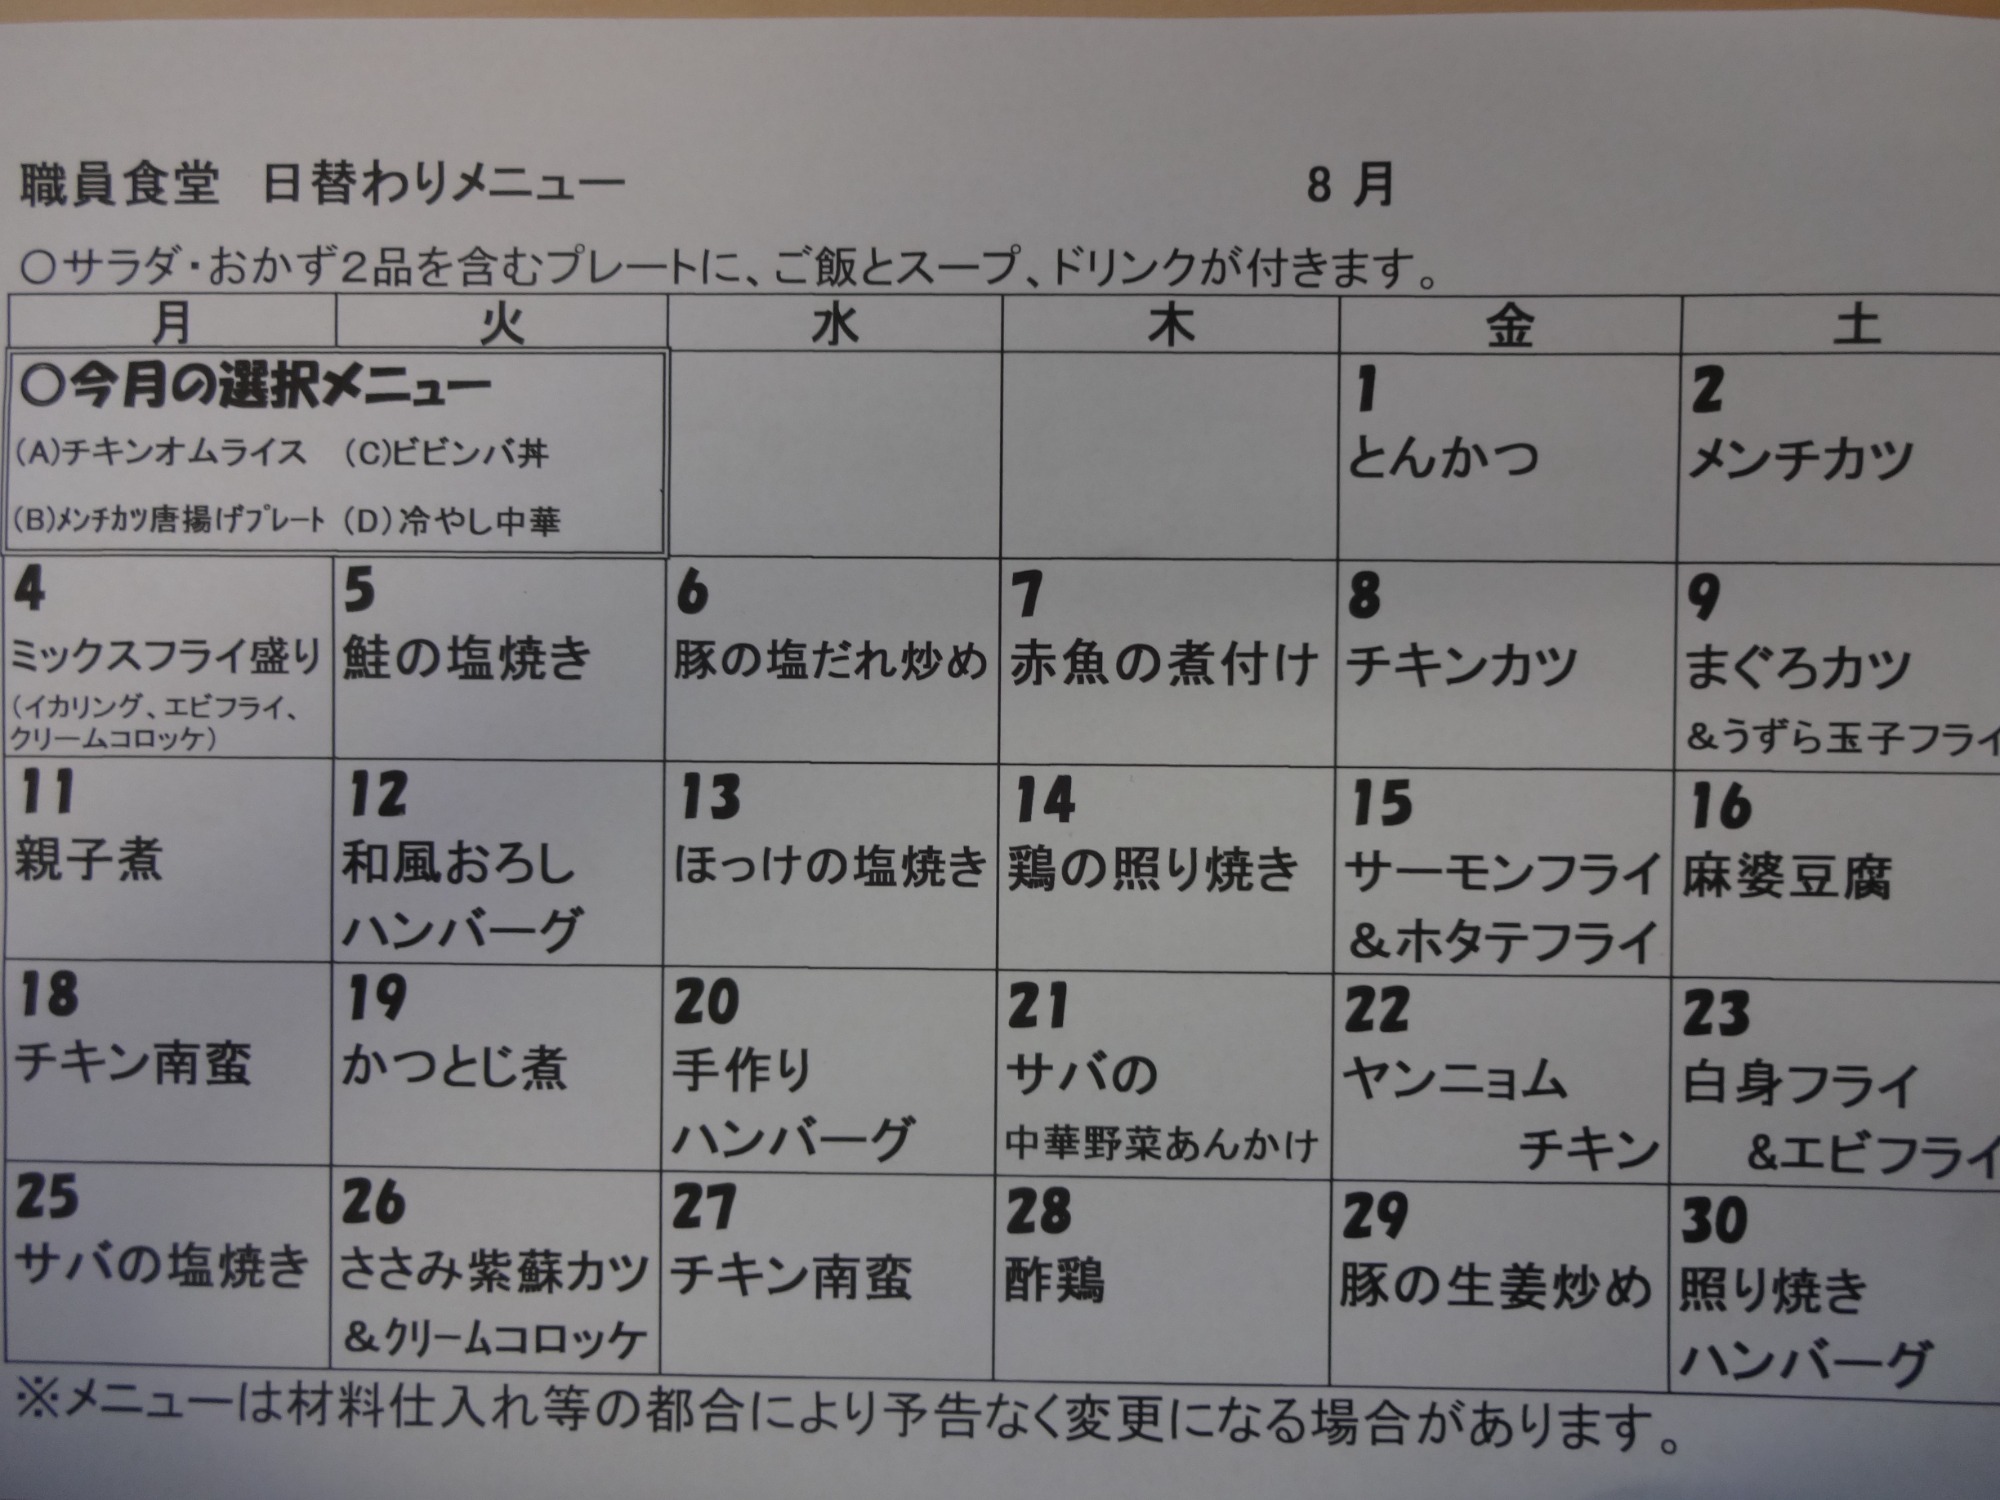 職員食堂　日替わりメニュー　8 月
○サラダ・おかず２品を含むプレートに、ご飯とスープ、ドリンクが付きます。
月 火 水 木 金 土
○今月の選択メニュー
(A)チキンオムライス (C)ビビンバ丼
(B)ﾒﾝﾁｶﾂ唐揚げﾌﾟﾚｰﾄ (D)冷やし中華
1
とんかつ
2
メンチカツ
4
ミックスフライ盛り
(イカリング、エビフライ、
クリームコロッケ)
5
鮭の塩焼き
6
豚の塩だれ炒め
7
赤魚の煮付け
8
チキンカツ
9
まぐろカツ
&うずら玉子フライ
11
親子煮
12
和風おろし
ハンバーグ
13
ほっけの塩焼き
14
鶏の照り焼き
15
サーモンフライ
&ホタテフライ
16
麻婆豆腐
18
チキン南蛮
19
かつとじ煮
20
手作り
ハンバーグ
21
サバの
中華野菜あんかけ
22
ヤンニョム
チキン
23
白身フライ
&エビフライ
25
サバの塩焼き
26
ささみ紫蘇カツ
&ｸﾘｰﾑコロッケ
27
チキン南蛮
28
酢鶏
29
豚の生姜炒め
30
照り焼き
ハンバーグ
※メニューは材料仕入れ等の都合により予告なく変更になる場合があります。